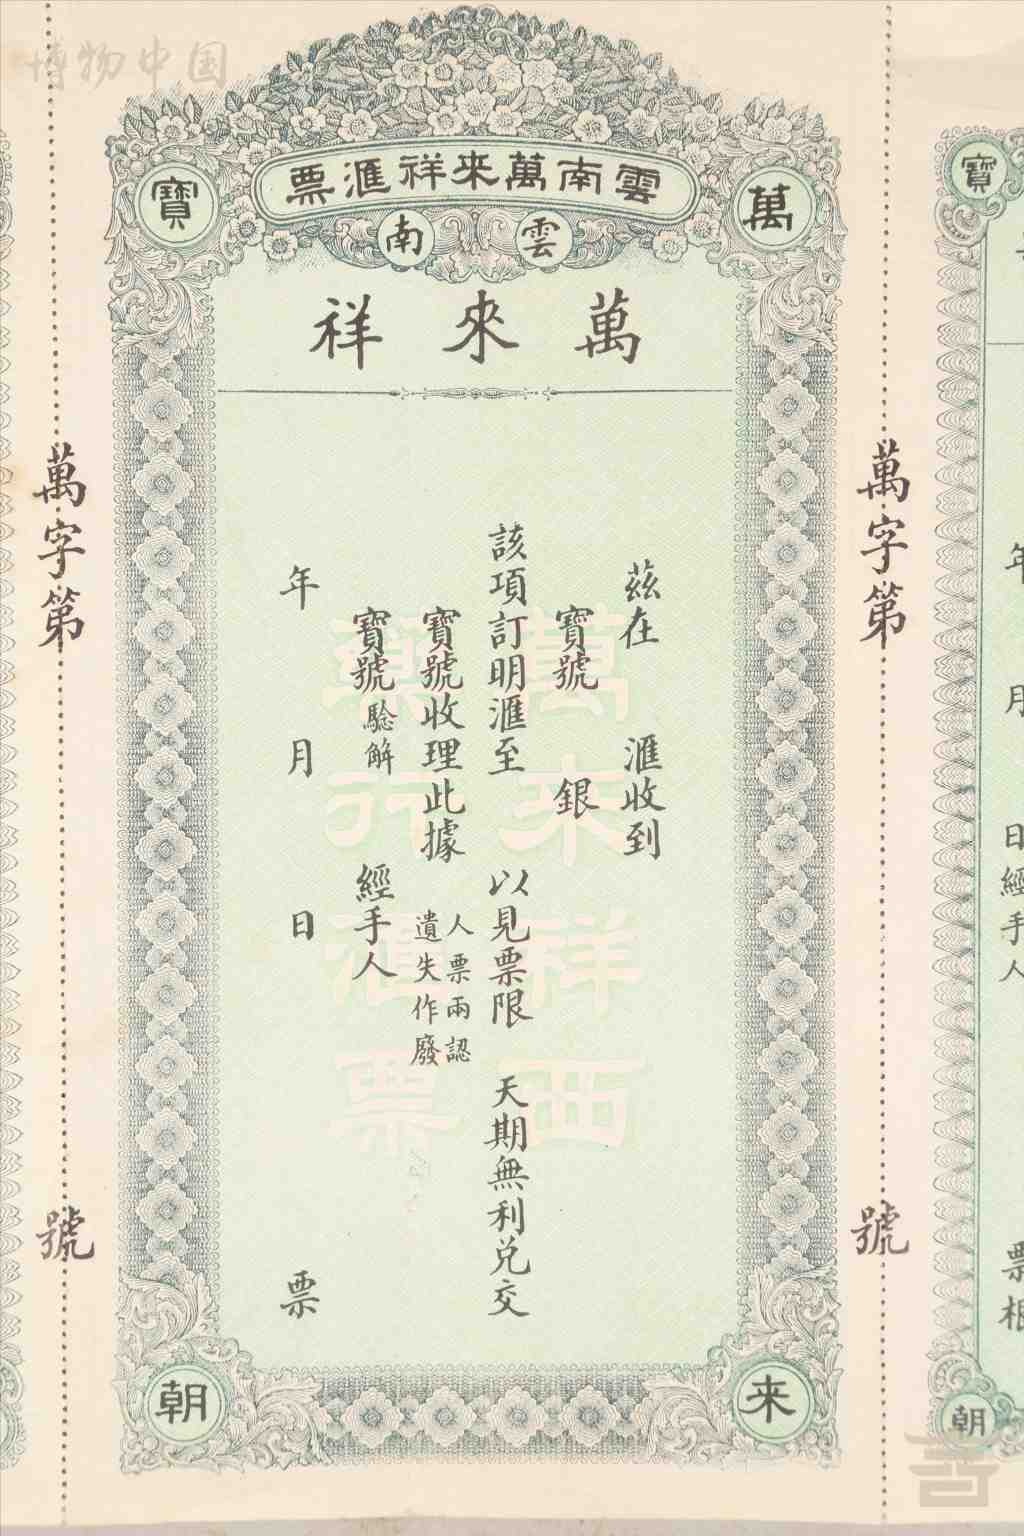 博物中国
雲南萬來祥滙票
萬
寶
雲南
萬來祥
茲在 滙收到
寶號 銀
該項訂明滙至 以見票限 天期無利兌交
寶號收理此據 人票兩認
遺失作廢
寶號驗解 經手人
年 月 日 票
來
朝
萬來祥西
藥行滙票
萬字第 號
萬字第 號
寶
年 月 日經手人
票根
朝